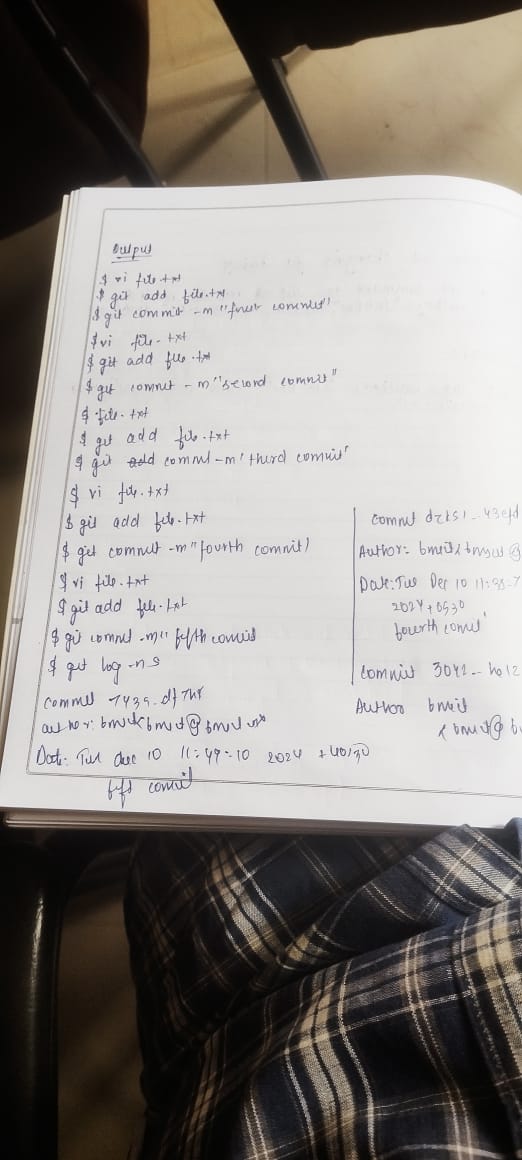 Output
$ vi file.txt
$ git add file.txt
$ git commit -m "first commit"
$ vi file.txt
$ git add file.txt
$ git commit -m "second commit"
$ file.txt
$ git add file.txt
$ git add commit -m "third commit"
$ vi file.txt
$ git add file.txt
$ git commit -m "fourth commit)
$ vi file.txt
$ git add file.txt
$ git commit -m" fifth commit
$ git log -n 5
commit
author: bmit
Date: Tue dec 10 11:49:10 2024
commit
commit
Author: bmit
Date: Tue Dec 10
2024 + 0530
fourth commit
commit
Author bmit